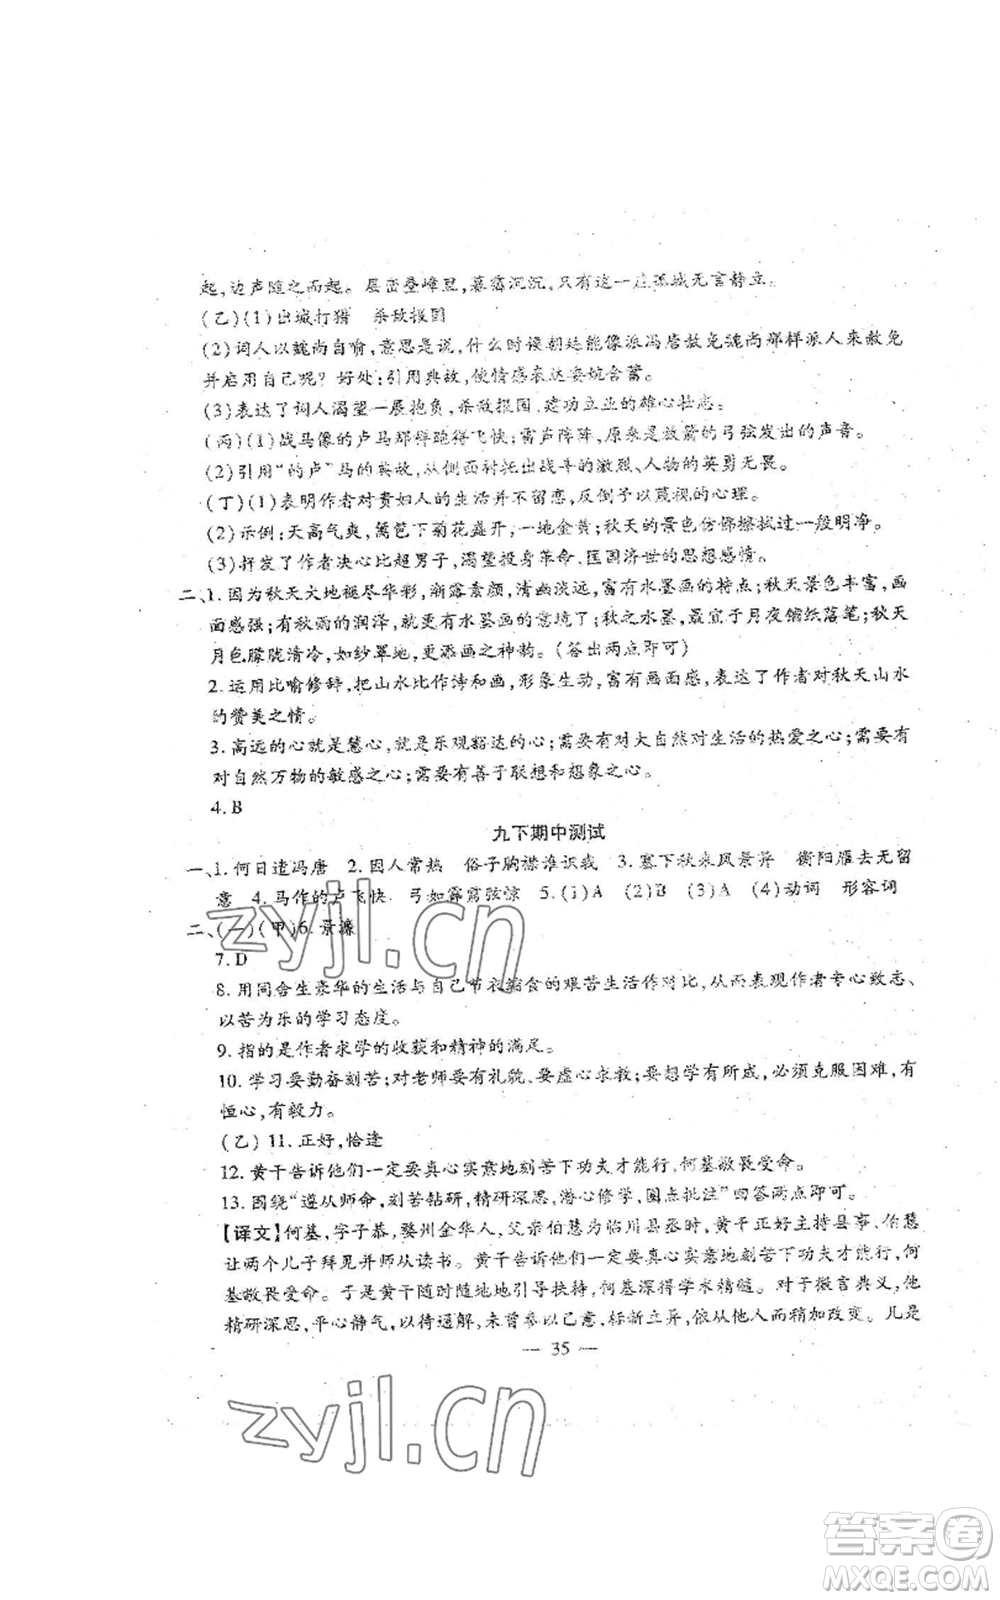 起,边声随之而起。层峦叠嶂里,暮霭沉沉,只有这一座孤城无言静立。
(乙)(1)出城打猎　杀敌报国
(2)词人以魏尚自喻,意思是说,什么时候朝廷能像派冯唐赦免魏尚那样派人来赦免
并启用自己呢?　好处:引用典故,使情感表达委婉含蓄。
(3)表达了词人渴望一展抱负,杀敌报国、建功立业的雄心壮志。
(丙)(1)战马像的卢马那样跑得飞快;雷声阵阵,原来是放箭的弓弦发出的声音。
(2)引用“的卢”马的典故,从侧面衬托出战斗的激烈、人物的英勇无畏。
(丁)(1)表明作者对贵妇人的生活并不留恋,反倒予以蔑视的心理。
(2)示例:天高气爽,篱笆下菊花盛开,一地金黄;秋天的景色仿佛擦拭过一般明净。
(3)抒发了作者决心比超男子,渴望投身革命、匡国济世的思想感情。
二、1.因为秋天大地褪尽华彩,渐露素颜,清幽淡远,富有水墨画的特点;秋天景色丰富,画
面感强;有秋雨的润泽,便有了水墨画的意境了;秋之水墨,最宜于月夜铺纸落笔;秋天
月色朦胧清冷,如纱罩地,更添画之神韵。(答出两点即可)
2.运用比喻修辞,把山水比作诗和画,形象生动,富有画面感,表达了作者对秋天山水
的赞美之情。
3.高远的心就是慧心,就是乐观豁达的心;需要有对大自然对生活的热爱之心;需要有
对自然万物的敏感之心;需要有善于联想和想象之心。
4.B
九下期中测试
一、1.何日遣冯唐　2.因人常热　俗子胸襟谁识我　3.塞下秋来风景异　衡阳雁去无留
意　4.马作的卢飞快　弓如霹雳弦惊　5.(1)A　(2)B　(3)A　(4)动词　形容词
二、(一)(甲)6.景濂
7.D
8.用同舍生豪华的生活与自己节衣缩食的艰苦生活作对比,从而表现作者专心致志、
以苦为乐的学习态度。
9.指的是作者求学的收获和精神的满足。
10.学习要勤奋刻苦;对老师要有礼貌、要虚心求教;要想学有所成,必须克服困难,有
恒心,有毅力。
(乙)11.正好,恰逢
12.黄干告诉他们一定要真心实意地刻苦下功夫才能行,何基敬畏受命。
13.围绕“遵从师命,刻苦钻研,精研深思,潜心修学,圈点批注”回答两点即可。
【译文】何基,字子恭,婺州金华人,父亲伯慧为临川县丞时,黄干正好主持县事、伯慧
让两个儿子拜见并师从读书。黄干告诉他们一定要真心实意地刻苦下功夫才能行,何
基敬畏受命。于是黄干随时随地引导扶持,何基深得学术精髓。对于微言典义,他
精研深思,平心静气,以待通解,未曾参以己意,标新立异,依从他人而稍加改变。凡是
— 35 —
zyjl.cn
zyjl.cn
答案圈
MXQE.COM